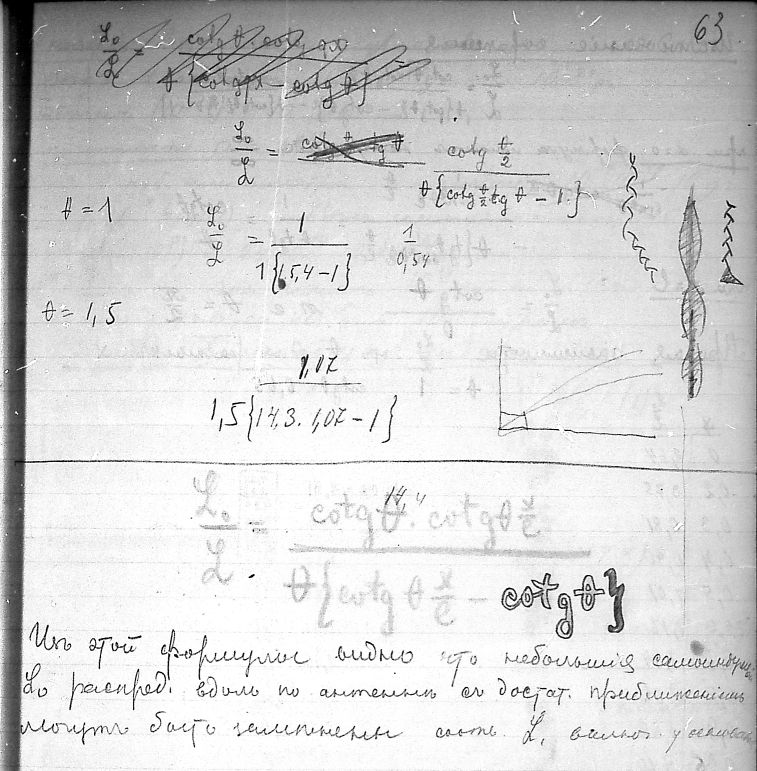 63
L₀/L = cotgθ·cotg qx / θ{cotg qx − cotg θ}
L₀/L = cotg θ/2 / θ{cotg θ/2 tg θ − 1}
θ = 1
L₀/L = 1 / 1{1,5,4 − 1} 1/0,54
θ = 1,5
1,07 / 1,5{14,3·1,07 − 1}
14,4
L₀/L = cotgθ·cotgθ x/l / θ{cotg θ x/l − cotg θ}
Изъ этой формулы видно что небольшія самоиндукц.
L₀ распред. вдоль по антеннѣ съ достат. приближеніемъ
могутъ быть замѣнены L,